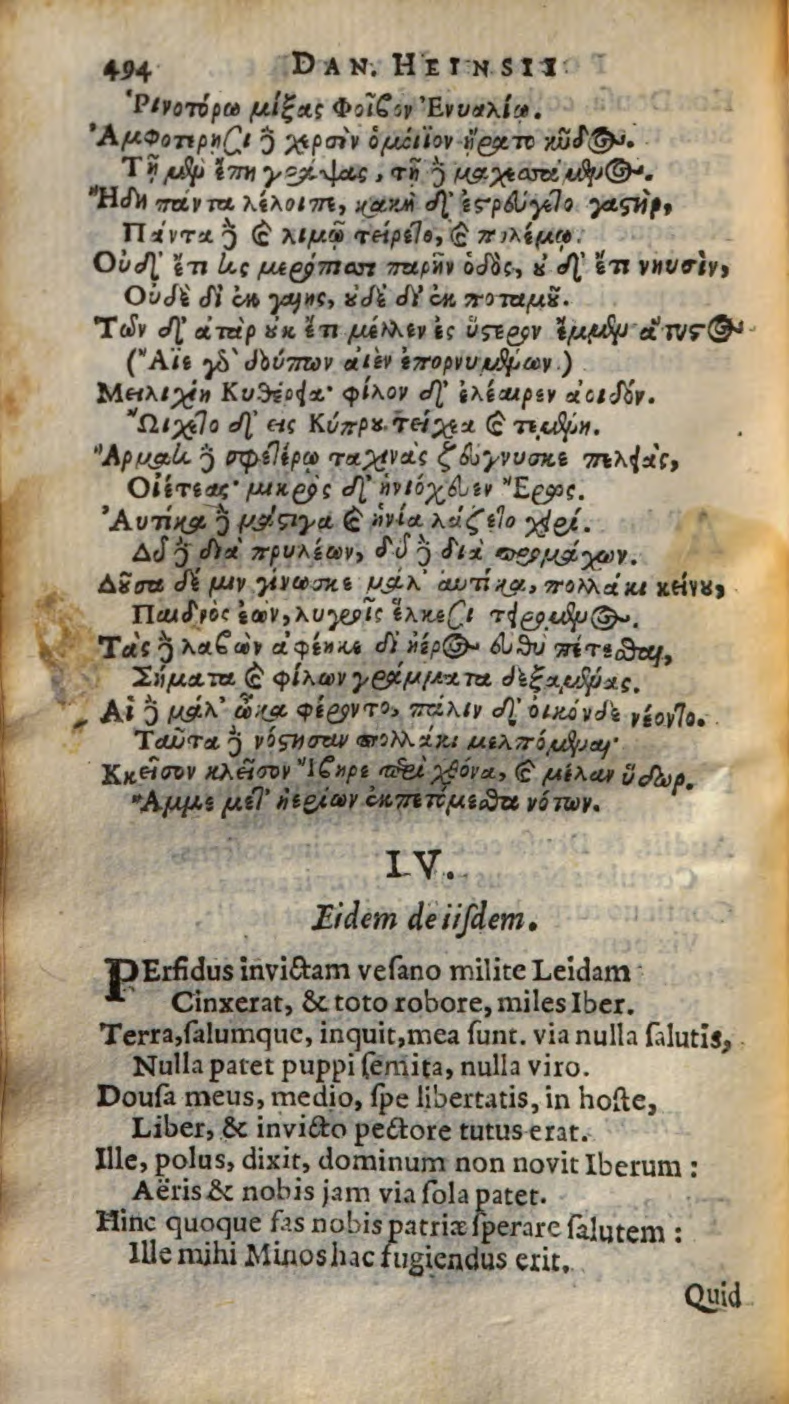 494 DAN. HEINSII
Ῥινοτόρῳ μίξας Φοῖϐον Ἐνυαλίῳ.
Ἀμφοτέρῃσι δὲ χερσὶν ὁμοίϊον ἤρατο κῦδος.
Τῇ μὲν ἔπη γράψας, τῇ δὲ μαχεσσάμενος.
Ἤδη πάντα λέλοιπε, κακὴ δ᾽ ἐστρεύγετο γαστὴρ,
Πάντα δὲ καὶ λιμῷ τείρετο, καὶ πολέμῳ.
Οὐδ᾽ ἔτι μερόπεσσι παρῆν ὁδὸς, οὐδ᾽ ἔτι νηυσὶν,
Οὐδὲ δι᾽ ἐκ γαίης, οὐδὲ δι᾽ ἐκ ποταμοῦ.
Τῶν δ᾽ ἀτὰρ οὐκ ἔτι μέλλεν ἐς ὕστερον ἔμμεν ἄϋστος
(Αἰὲ γὸ δούπων αἰὲν ἐπορνυμένων.)
Μειλιχίη Κυθέρεια· φίλον δ᾽ ἐλέαιρεν ἀοιδόν.
Ὤιχετο δ᾽ εἰς Κύπρου τείχεα καὶ τεμένη.
Ἅρμασι δὲ σφετέρῳ ταχινὰς ζεύγνυσκε πελείας,
Οἰέτεας· μικρὸς δ᾽ ἡνιόχευεν Ἔρως.
Αὐτίκα δὲ μάστιγα καὶ ἡνία λάζετο χειρί.
Δῦ δὲ διὰ πρυλέων, δῦ δὲ διὰ προμάχων.
Δοῦσα δέ μιν γίνωσκε μάλ᾽ αὐτίκα, πολλάκι κείνου,
Παιδνὸς ἐὼν, λυγεροῖς ἕλκεσι τειρόμενος.
Τὰς δὲ λαϐὼν ἀφέηκε δι᾽ ἠέρος εὐθὺ πέτεσθαι,
Σήματα καὶ φίλων γράμματα δεξαμένας.
Αἱ δὲ μάλ᾽ ὦκα φέροντο, πάλιν δ᾽ οἰκόνδε νέοντο.
Ταῦτα δὲ νόστησαν πολλάκι μελπόμεναι·
Κλεῖσον κλεῖσον Ἴϐηρε περὶ χθόνα, καὶ μέλαν ὕδωρ.
Ἄμμε μετ᾽ ἠερίων ἐκπεπόμεσθα νότων.
LV.
Eidem de iisdem.
PErfidus invictam vesano milite Leidam
Cinxerat, & toto robore, miles Iber.
Terra, salumque, inquit, mea sunt. via nulla salutis,
Nulla patet puppi semita, nulla viro.
Dousa meus, medio, spe libertatis, in hoste,
Liber, & invicto pectore tutus erat.
Ille, polus, dixit, dominum non novit Iberum :
Aëris & nobis jam via sola patet.
Hinc quoque fas nobis patriæ sperare salutem :
Ille mihi Minos hac fugiendus erit.
Quid